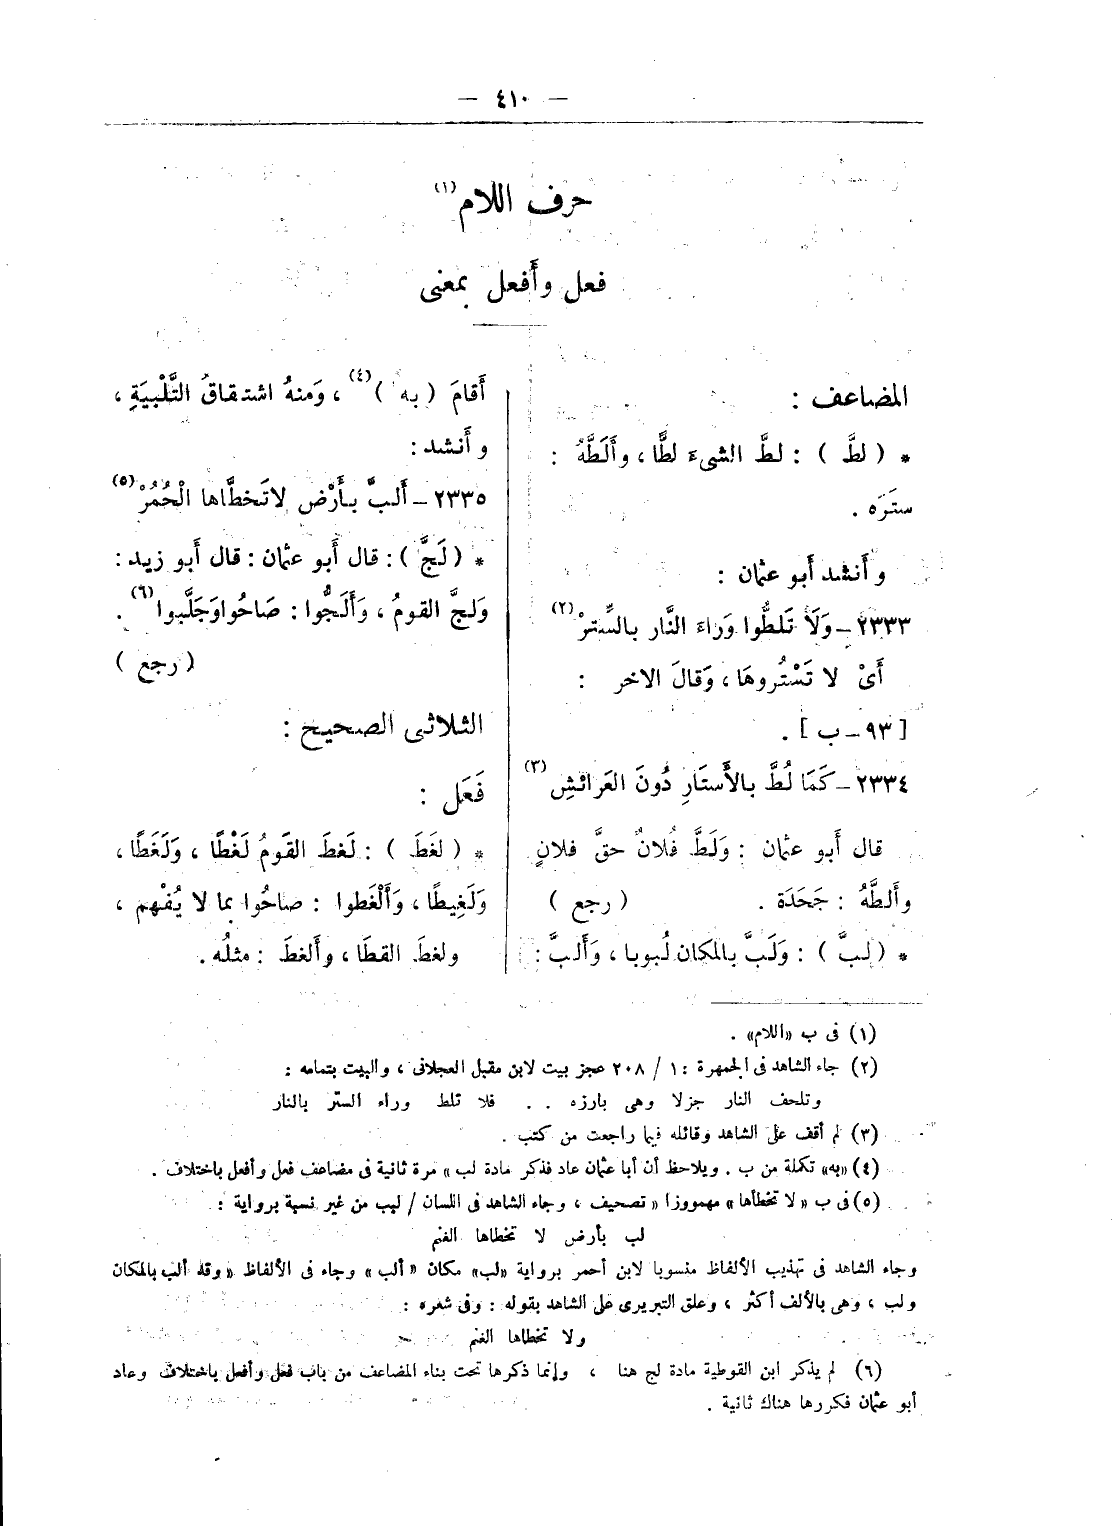 — ٤١٠ —
حرف اللام (١)
فعل وأَفعل بمعنى
المضاعف :
* ( لطَّ ) : لطَّ الشىءَ لطًّا ، وأَلَطَّهُ :
ستَرَه .
وأَنشد أَبو عثمان :
٢٣٣٣ - وَلَا تَلطُّوا وَراءَ النَّار بالسِّترْ (٢)
أَىْ لا تَسْتُروهَا ، وَقالَ الاخر :
[ ٩٣ - ب ] .
٢٣٣٤ - كَمَا لُطَّ بالأَستَارِ دُونَ العَرائشِ (٣)
قال أَبو عثمان : وَلَطَّ فُلانٌ حقَّ فلانٍ
وأَلطَّهُ : جَحَدَة . ( رجع )
* ( لبَّ ) : وَلَبَّ بالمكان لُبوبا ، وَأَلبَّ :
أَقامَ ( به ) (٤) ، وَمنهُ اشتقاقُ التَّلْبيَةِ ،
وأَنشد :
٢٣٣٥ - أَلبَّ بأَرْض لاتَخطَّاها الْحُمُرْ (٥)
* ( لَجَّ ) : قال أَبو عثمان : قال أَبو زيد :
وَلجَّ القومُ ، وَأَلَجُّوا : صَاحُواوَجَلَّبوا (٦) .
( رجع )
الثلاثى الصحيح :
فَعَل :
* ( لغَط ) : لَغطَ القَومُ لَغْطًا ، وَلَغَطًا ،
وَلَغِيطًا ، وَأَلْغَطوا : صاحُوا بما لا يُفْهم ،
ولغطَ القطَا ، وأَلغطَ : مثلُه .
(١) فى ب «اللام» .
(٢) جاء الشاهد فى الجمهرة : ١ / ٢٠٨ عجز بيت لابن مقبل العجلانى ، والبيت بتمامه :
وتلحف النار جزلا وهى بارزه . . فلا تلط وراء الستر بالنار
(٣) لم أقف على الشاهد وقائله فيما راجعت من كتب .
(٤) «به» تكملة من ب . ويلاحظ أن أبا عثمان عاد فذكر مادة لب » مرة ثانية فى مضاعف فعل وأفعل باختلاف .
(٥) فى ب « لا تخطأها » مهموزا « تصحيف ، وجاء الشاهد فى اللسان / لبب من غير نسبة برواية :
لب بأرض لا تخطاها الغنم
وجاء الشاهد فى تهذيب الألفاظ منسوبا لابن أحمر برواية «لب» مكان «ألب» وجاء فى الألفاظ «وقد ألب بالمكان
ولب ، وهى بالألف أكثر ، وعلق التبريرى على الشاهد بقوله : وفى شعره :
ولا تخطاها الغنم
(٦) لم يذكر ابن القوطية مادة لج هنا ، وإنما ذكرها تحت بناء المضاعف من باب فعل وأفعل باختلاف وعاد
أبو عثمان فكررها هناك ثانية .